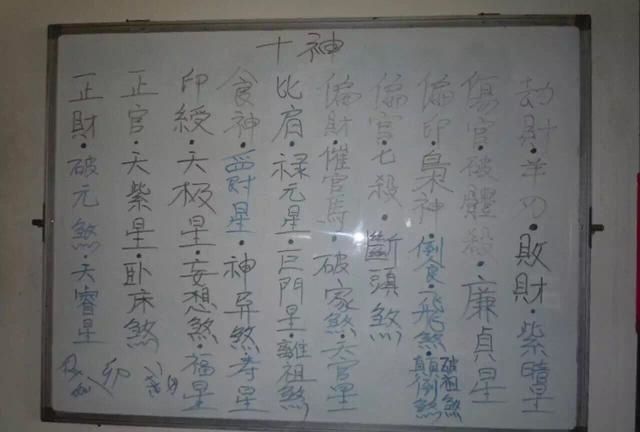 十神
劫財·羊刃·敗財·紫暗星
傷官·破體殺·廉貞星
偏印·梟神·倒食·飛煞·顛倒煞破祖煞
偏官·七殺·斷頭煞
偏財·催官馬·破家煞·天官星
比肩·禄元星·巨門星·離祖煞
食神·爵星·神异煞·寿星
印綬·天极星·妄想煞·福星
正官·天紫星·卧床煞
正財·破元煞·天睿星
卯